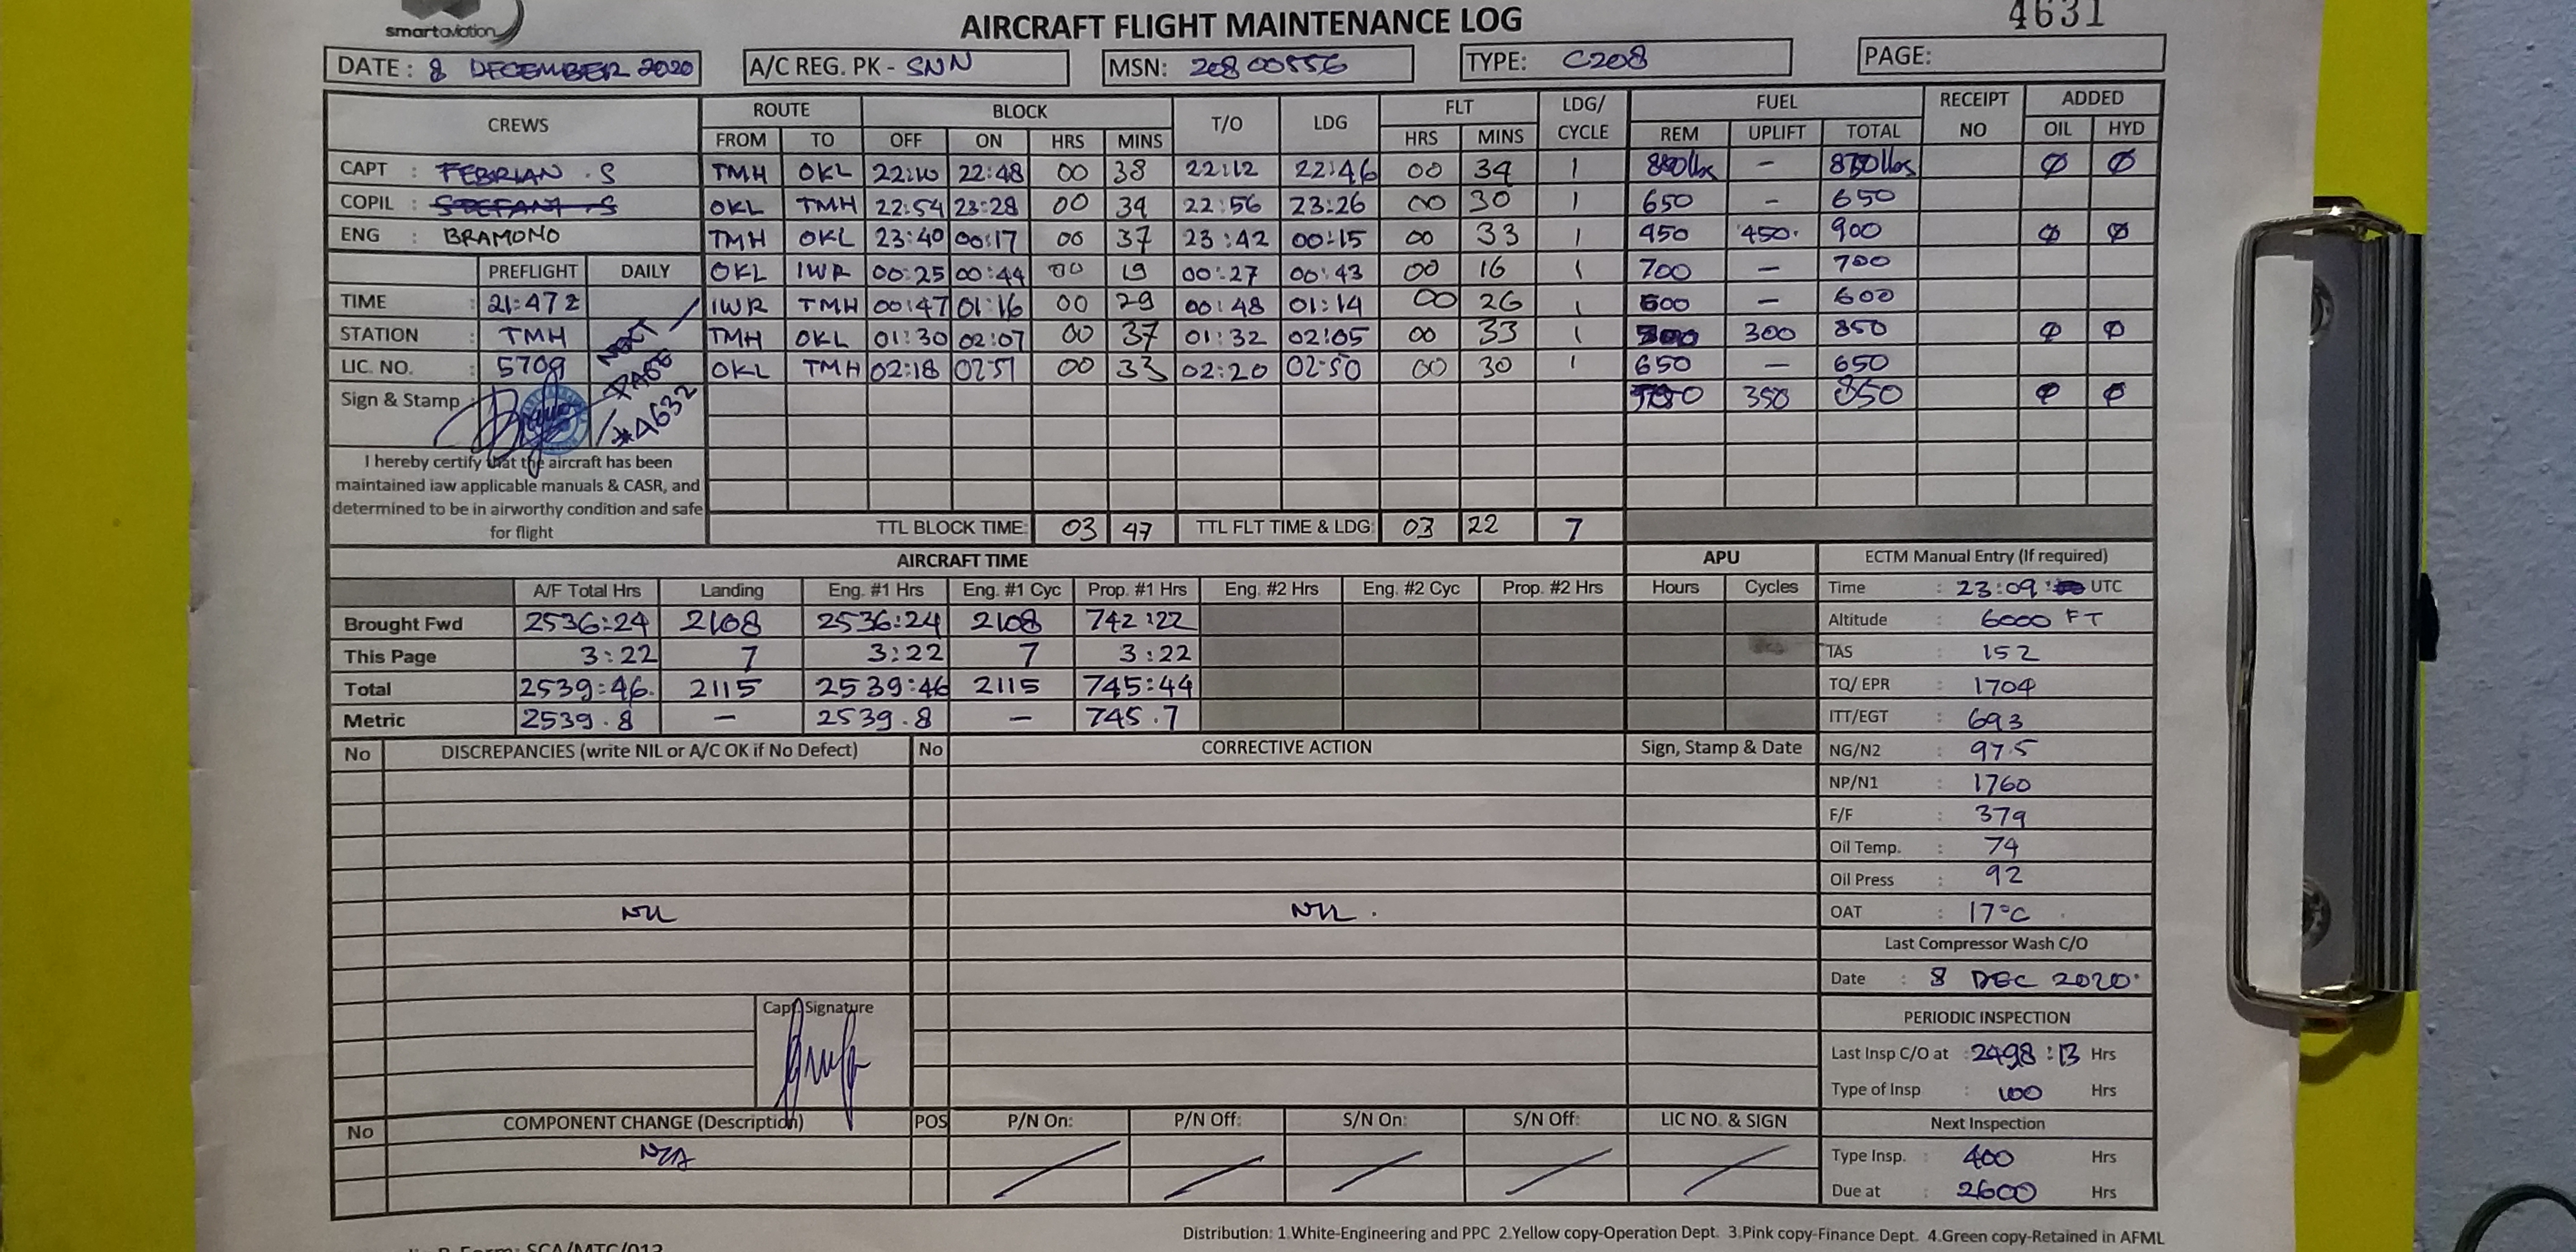 smartaviation
AIRCRAFT FLIGHT MAINTENANCE LOG
4631
DATE : 8 DECEMBER 2020 A/C REG. PK - SNN MSN: 20800556 TYPE: C208 PAGE:
CREWS ROUTE BLOCK T/O LDG FLT LDG/ CYCLE FUEL RECEIPT NO ADDED
FROM TO OFF ON HRS MINS HRS MINS REM UPLIFT TOTAL OIL HYD
CAPT : FEBRIAN . S TMH OKL 22:10 22:48 00 38 22:12 22:46 00 34 1 - ϕ ϕ
COPIL : STEFANI S OKL TMH 22:54 23:28 00 34 22:56 23:26 00 30 1 650 - 650
ENG : BRAMONO TMH OKL 23:40 00:17 00 37 23:42 00:15 00 33 1 450 450. 900 ϕ ϕ
PREFLIGHT DAILY OKL IWR 00:25 00:44 00 19 00:27 00:43 00 16 1 700 - 700
TIME : 21:47 z IWR TMH 00:47 01:16 00 29 00:48 01:14 00 26 1 600 - 600
STATION : TMH TMH OKL 01:30 02:07 00 37 01:32 02:05 00 33 1 300 850 ϕ ϕ
LIC. NO. : 5709 OKL TMH 02:18 02:51 00 33 02:20 02:50 00 30 1 650 - 650
NEXT PAGE #4632
Sign & Stamp : 350 850 ϕ ϕ
I hereby certify that the aircraft has been
maintained iaw applicable manuals & CASR, and
determined to be in airworthy condition and safe
for flight
TTL BLOCK TIME: 03 47 TTL FLT TIME & LDG: 03 22 7
AIRCRAFT TIME APU ECTM Manual Entry (If required)
A/F Total Hrs Landing Eng. #1 Hrs Eng. #1 Cyc Prop. #1 Hrs Eng. #2 Hrs Eng. #2 Cyc Prop. #2 Hrs Hours Cycles Time : 23:09 UTC
Brought Fwd 2536:24 2108 2536:24 2108 742:22 Altitude : 6000 FT
This Page 3:22 7 3:22 7 3:22 TAS : 152
Total 2539:46. 2115 2539:46 2115 745:44 TQ/ EPR : 1704
Metric 2539.8 - 2539.8 - 745.7 ITT/EGT : 693
No DISCREPANCIES (write NIL or A/C OK if No Defect) No CORRECTIVE ACTION Sign, Stamp & Date NG/N2 : 97.5
NP/N1 : 1760
F/F : 379
Oil Temp. : 74
Oil Press : 92
NIL NIL . OAT : 17°C
Last Compressor Wash C/O
Date : 8 DEC 2020
Capt. Signature
PERIODIC INSPECTION
Last Insp C/O at : 2498:13 Hrs
Type of Insp : 100 Hrs
No COMPONENT CHANGE (Description) POS P/N On: P/N Off: S/N On: S/N Off: LIC NO. & SIGN Next Inspection
N/A Type Insp. : 400 Hrs
Due at : 2600 Hrs
Distribution: 1.White-Engineering and PPC 2.Yellow copy-Operation Dept. 3.Pink copy-Finance Dept. 4.Green copy-Retained in AFML
Form: SCA/MTC/012